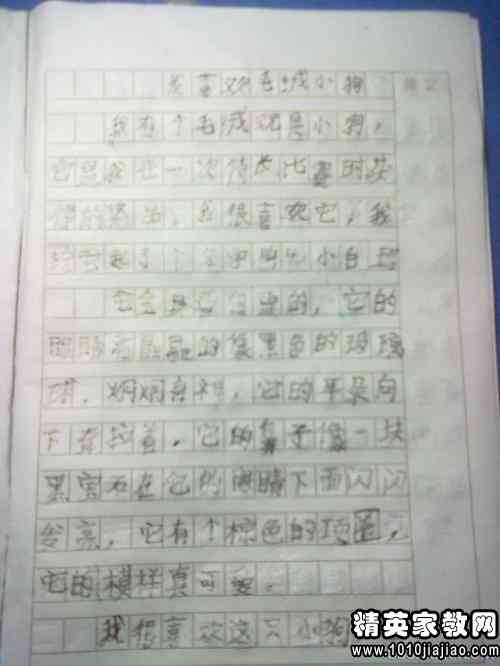 我喜欢毛绒小狗
我有个毛绒玩具小狗，
它是我在一次特长比赛的获
得的    ，我很喜欢它，我
给它起了个    小白
它全身    白色的，它的
眼睛    的像黑色的玻璃
球，炯炯有神，它的耳朵向
下耷拉着，它的鼻子像一块
黑宝石在它的眼睛下面闪闪
发亮，它有个棕色的项圈，
它的模样真可爱。
我很喜欢这只小狗
精英家教网
www.1010jiajiao.com